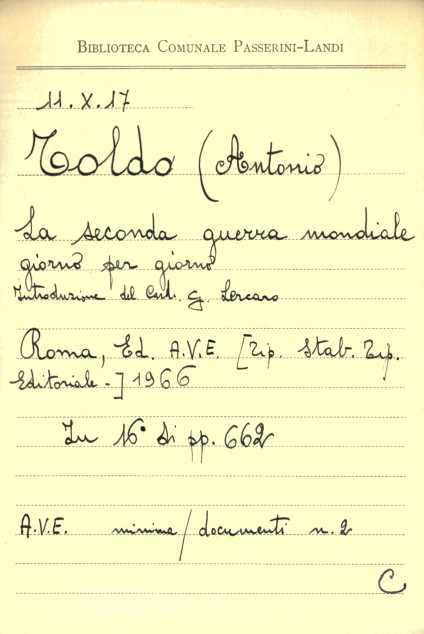 BIBLIOTECA COMUNALE PASSERINI-LANDI
11.X.17
Toldo (Antonio)
La seconda guerra mondiale
giorno per giorno
Introduzione del Card. G. Lercaro
Roma, Ed. A.V.E. [Tip. Stab. Tip.
Editoriale-] 1966
In 16° di pp. 662
A.V.E. minima/documenti n.2
C